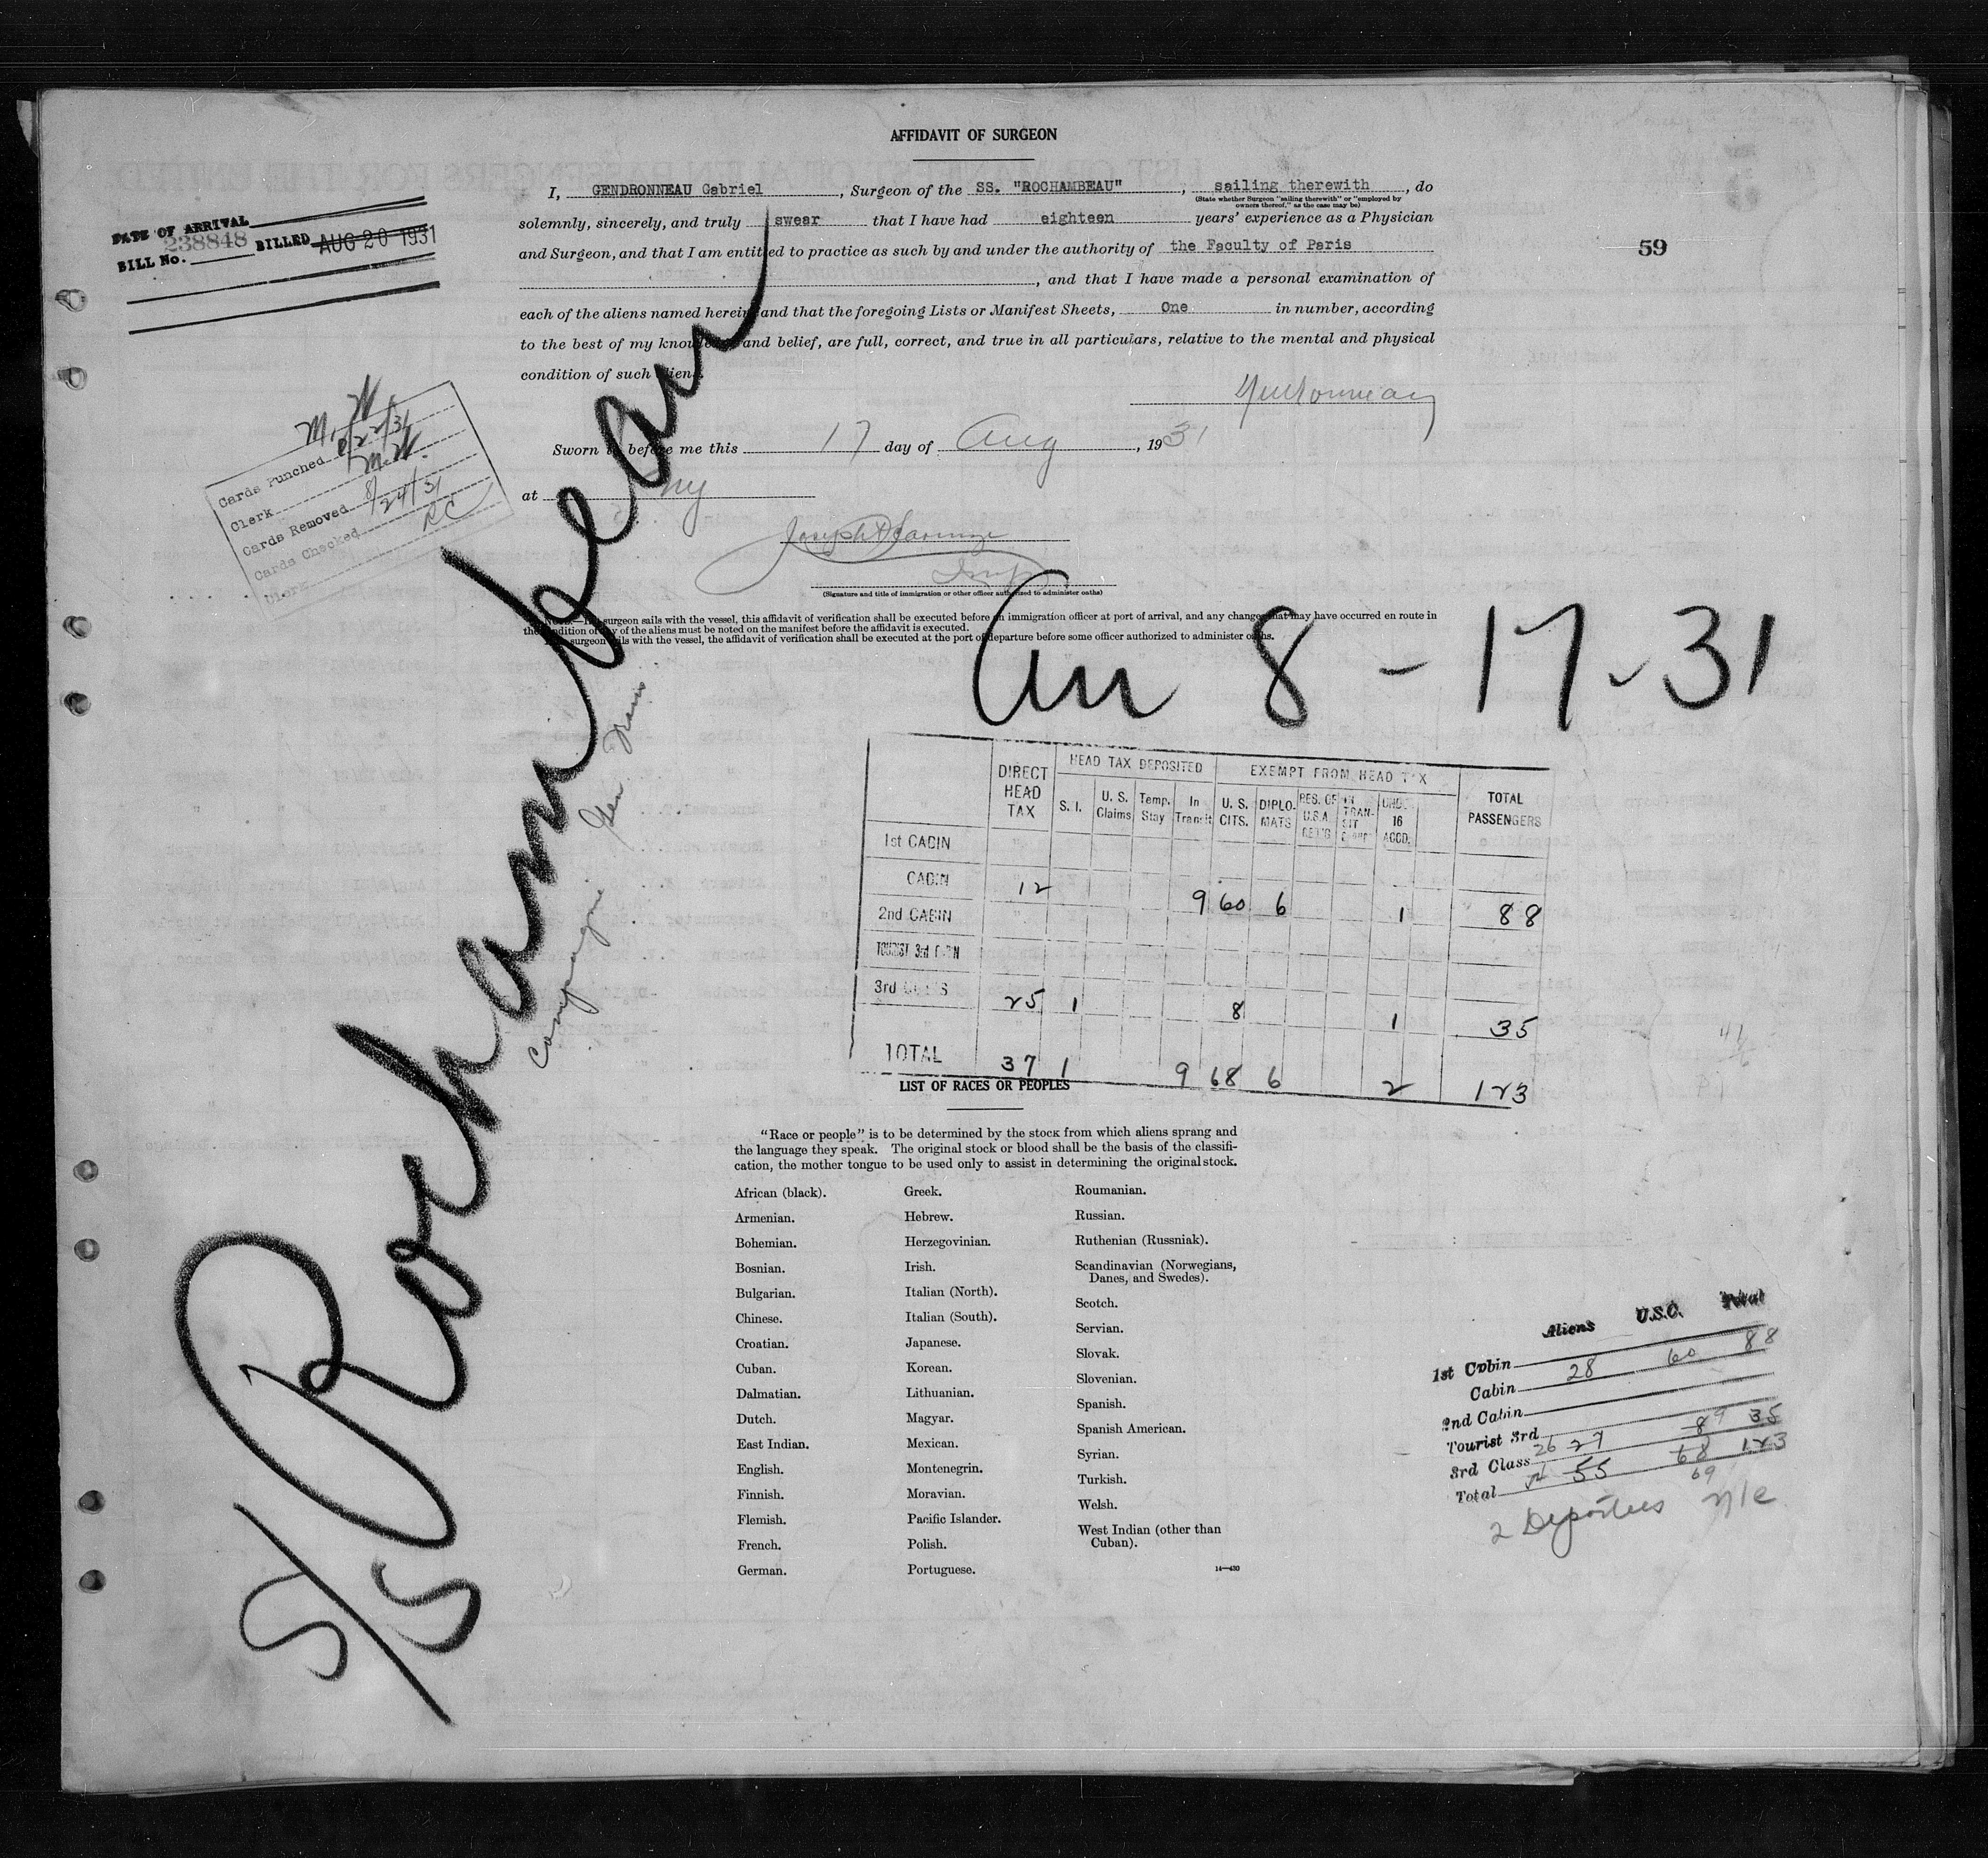 AFFIDAVIT OF SURGEON
I, GENDRONNEAU Gabriel, Surgeon of the SS. "ROCHAMBEAU", sailing therewith, do
(State whether Surgeon "sailing therewith" or "employed by
owners thereof," as the case may be)
solemnly, sincerely, and truly swear that I have had eighteen years' experience as a Physician
and Surgeon, and that I am entitled to practice as such by and under the authority of the Faculty of Paris
, and that I have made a personal examination of
each of the aliens named herein and that the foregoing Lists or Manifest Sheets, One in number, according
to the best of my knowledge and belief, are full, correct, and true in all particulars, relative to the mental and physical
condition of such aliens.
Sworn to before me this 17 day of Aug, 1931
at NY
Insp
(Signature and title of immigration or other officer authorized to administer oaths)
NOTE.—If surgeon sails with the vessel, this affidavit of verification shall be executed before an immigration officer at port of arrival, and any change that may have occurred en route in
the condition of any of the aliens must be noted on the manifest before the affidavit is executed.
surgeon sails with the vessel, the affidavit of verification shall be executed at the port of departure before some officer authorized to administer oaths.
DATE OF ARRIVAL
238848 BILLED AUG 20 1931
BILL No.
59
M. W.
Cards Punched 8/22/31
Clerk M.W.
Cards Removed 8/24/31
Cards Checked RC
Clerk
S/S Rochambeau
Compagnie Gen Trans
Arr 8-17-31
DIRECT HEAD TAX
HEAD TAX DEPOSITED
EXEMPT FROM HEAD TAX
TOTAL PASSENGERS
S. I. U. S. Claims Temp. Stay In Transit U. S. CITS. DIPLO-MATS RES. OF U.S.A. RET'G IN TRAN-SIT UNDER 16 ACCD.
1st CABIN
CABIN 12 9 60 6 1 88
2nd CABIN
TOURIST 3rd CABIN
3rd CLASS 25 1 8 1 35
TOTAL 37 1 9 68 6 2 123
LIST OF RACES OR PEOPLES
"Race or people" is to be determined by the stock from which aliens sprang and
the language they speak. The original stock or blood shall be the basis of the classifi-
cation, the mother tongue to be used only to assist in determining the original stock.
African (black).
Armenian.
Bohemian.
Bosnian.
Bulgarian.
Chinese.
Croatian.
Cuban.
Dalmatian.
Dutch.
East Indian.
English.
Finnish.
Flemish.
French.
German.
Greek.
Hebrew.
Herzegovinian.
Irish.
Italian (North).
Italian (South).
Japanese.
Korean.
Lithuanian.
Magyar.
Mexican.
Montenegrin.
Moravian.
Pacific Islander.
Polish.
Portuguese.
Roumanian.
Russian.
Ruthenian (Russniak).
Scandinavian (Norwegians,
Danes, and Swedes).
Scotch.
Servian.
Slovak.
Slovenian.
Spanish.
Spanish American.
Syrian.
Turkish.
Welsh.
West Indian (other than
Cuban).
14—430
Aliens U.S.C. Total
1st Cabin
Cabin 28 60 88
2nd Cabin
Tourist 3rd
3rd Class 26 27 8 9 35
Total 55 68 123
69
2 Deportees